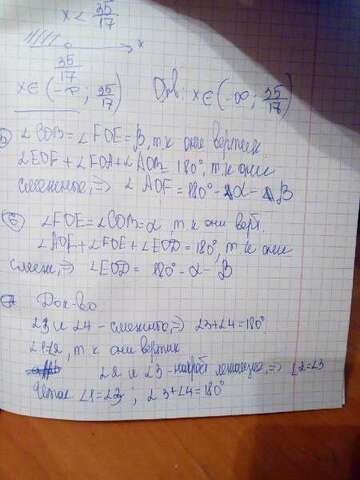 x < 35/17
x
35/17
x ∈ (-∞; 35/17) Отв: x ∈ (-∞; 35/17)
5) ∠COB = ∠FOE = β, т.к они вертик
∠EOF + ∠FOA + ∠AOB = 180°, т.к они
смежные, ⇒ ∠AOF = 180° - α - β
6) ∠FOE = ∠COB = α, т к они верт
∠AOF + ∠FOE + ∠EOD = 180°, т к они
смеж, ⇒ ∠EOD = 180° - α - β
7) Док-во
∠3 и ∠4 - смежные, ⇒ ∠3+∠4=180°
∠1=∠2, т к они вертик
∠2 и ∠3 - накрест лежащие, ⇒ ∠2=∠3
Итак ∠1=∠3, ∠3+∠4=180°